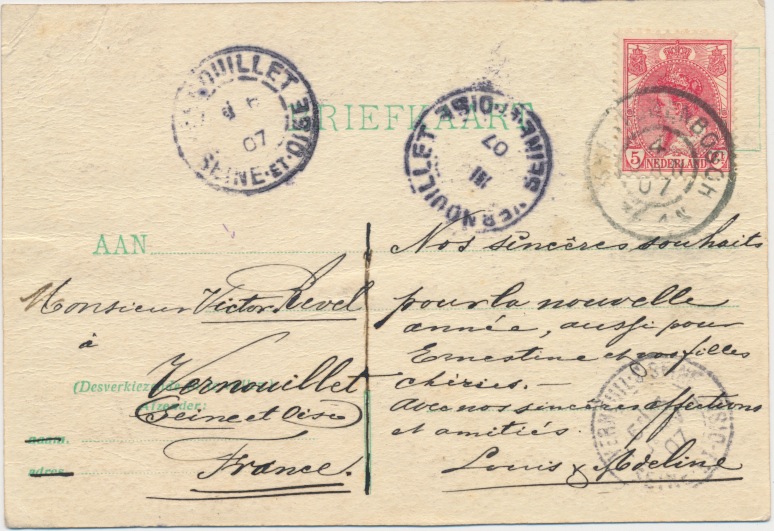 VERNOUILLET
SEINE-ET-OISE
07
VERNOUILLET
SEINE-ET-OISE
07
BOSCH
4
07
5 NEDERLAND
BRIEFKAART
AAN
Monsieur Victor Revel
à
Vernouillet
(Desverkiezende
Afzender:
Seine et Oise
naam.
adres
France.
Nos sincères souhaits
pour la nouvelle
année, aussi pour
Ernestine et vos filles
chéries. —
Avec nos sincères affections
et amitiés.
Louis & Adeline
07